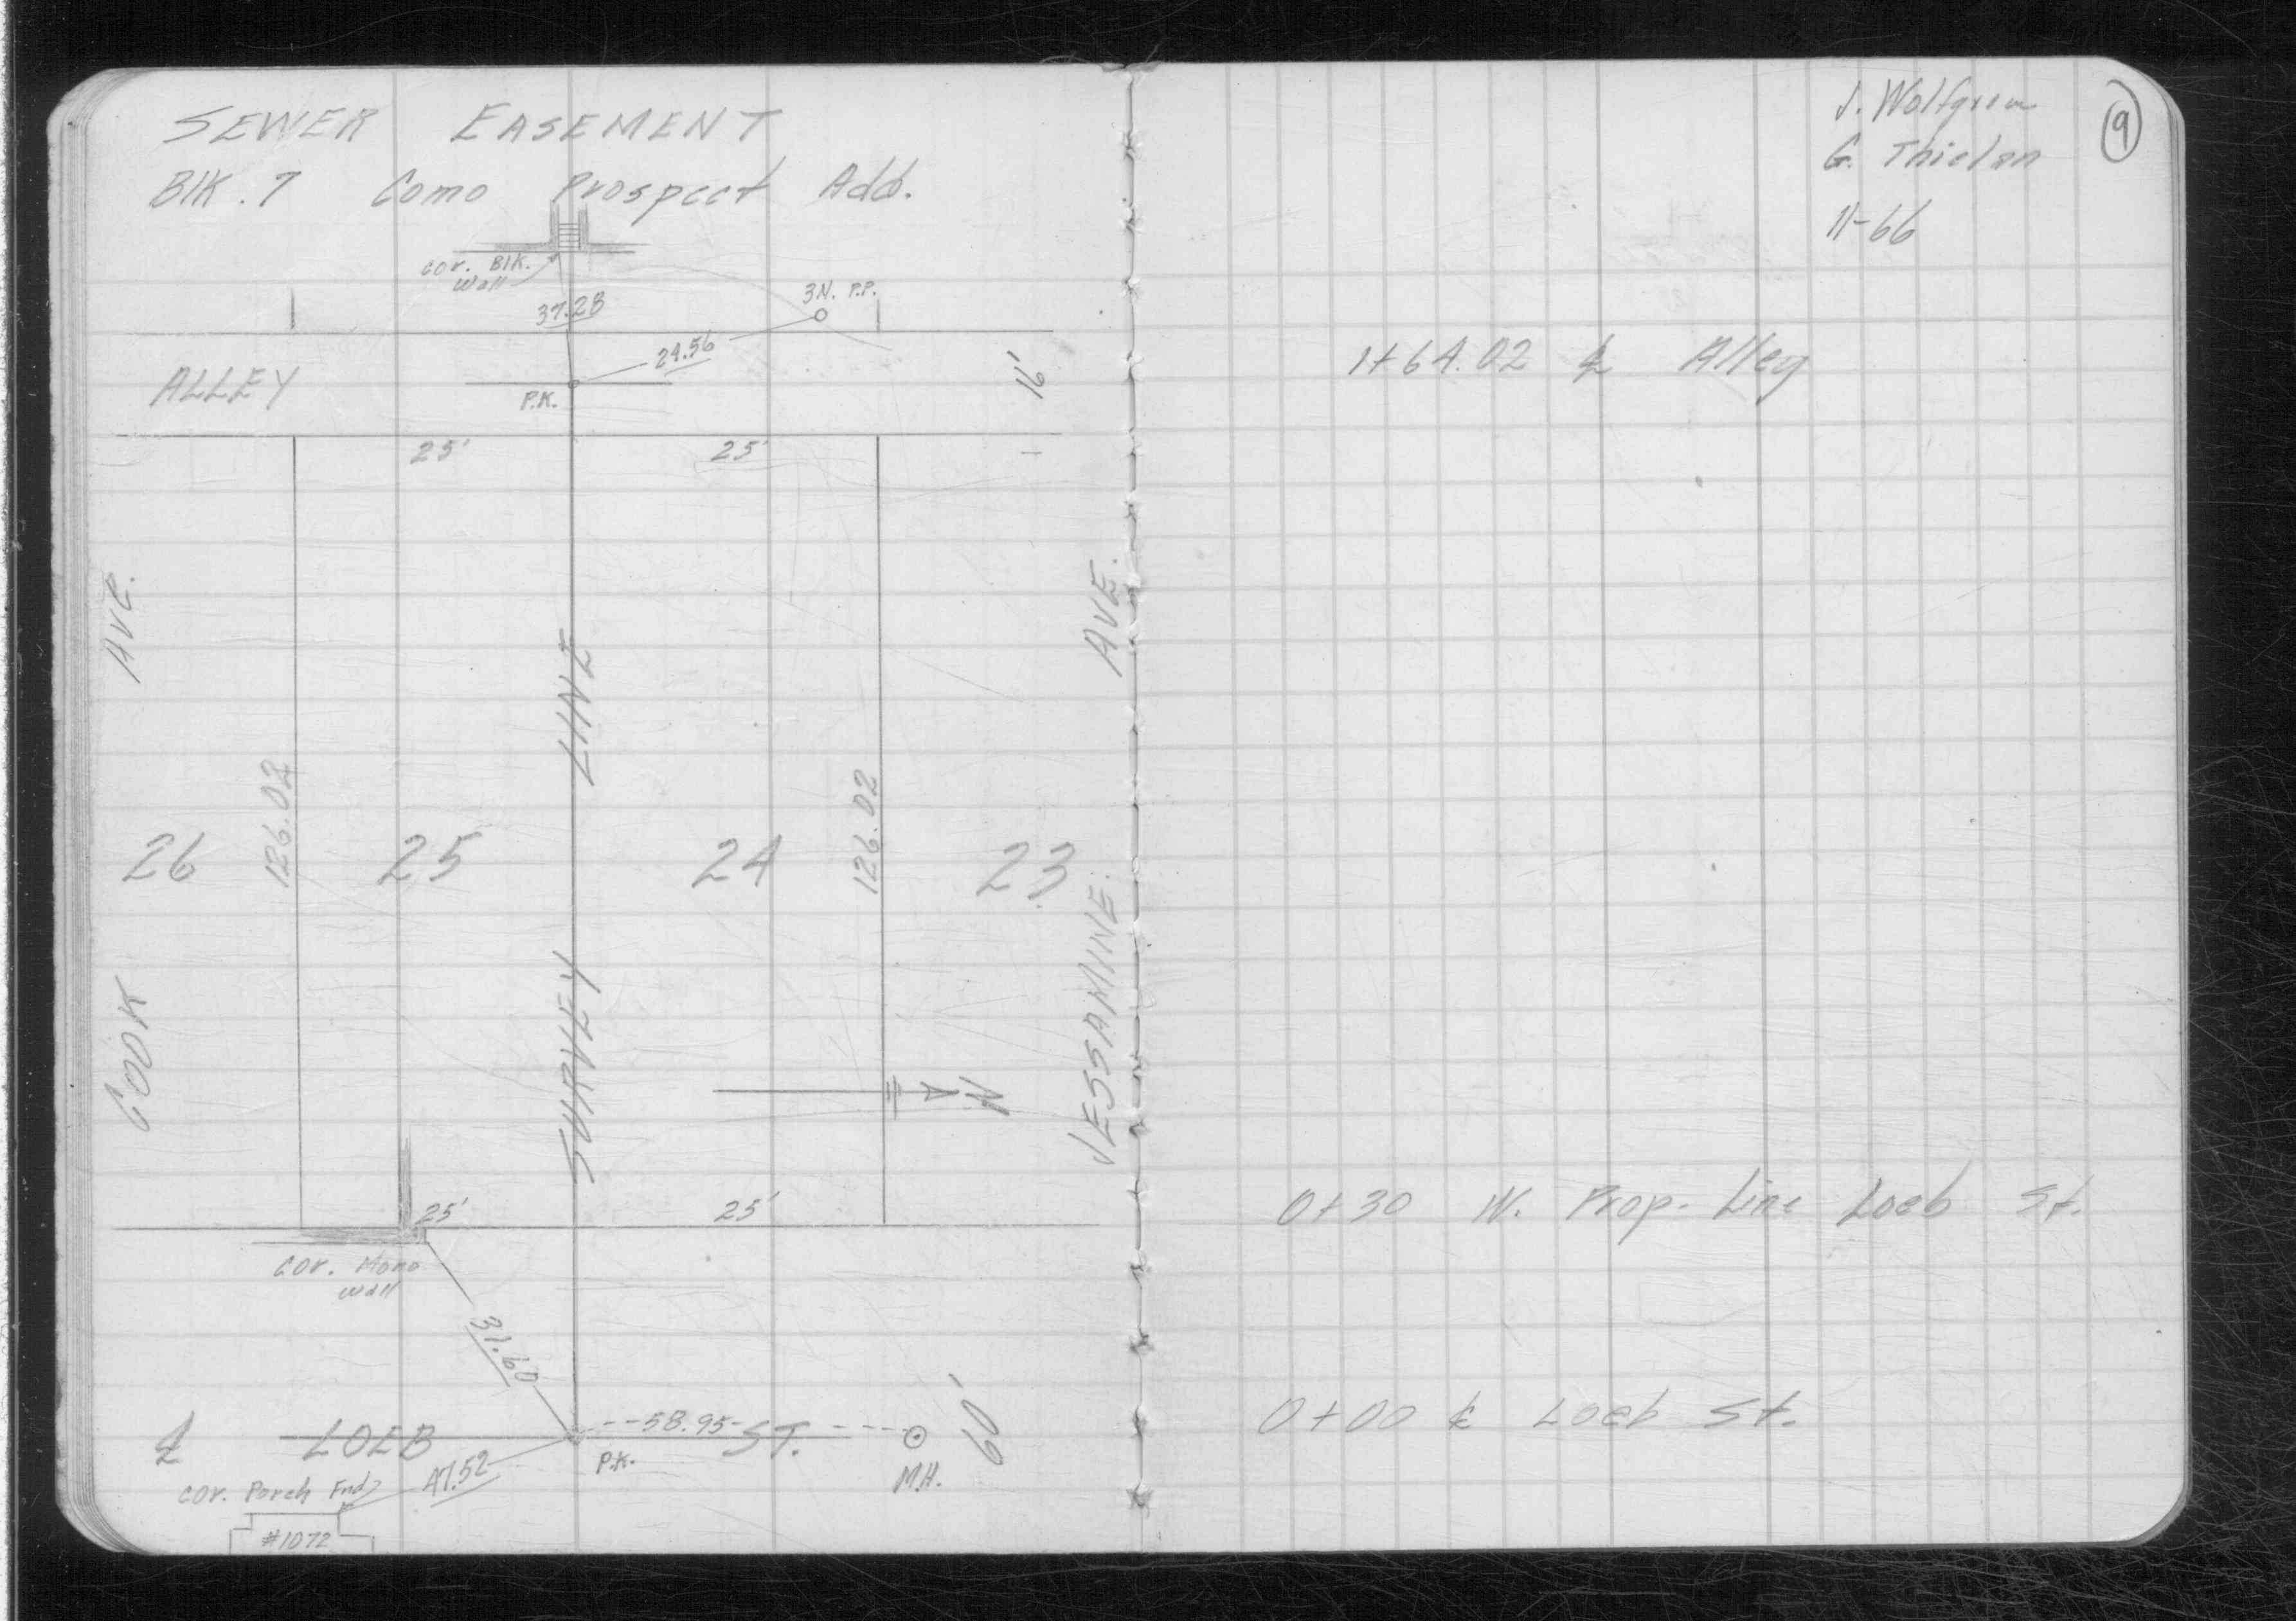 SEWER EASEMENT
Blk. 7 Como Prospect Add.
cor. Blk.
Wall
37.28
3N. P.P.
24.56
ALLEY
P.K.
16'
25'
25'
AVE.
AVE.
LINE
126.02
126.02
26
25
24
23
COOK
SURVEY
JESSAMINE
N
25'
25'
cor. Mono
wall
31.60
℄ LOEB ST.
58.95
60'
P.K.
M.H.
47.52
cor. Porch Fnd
#1072
J. Wolfgram
G. Thielen
11-66
9
1+64.02 ℄ Alley
0+30 W. Prop. Line Loeb St.
0+00 ℄ Loeb St.